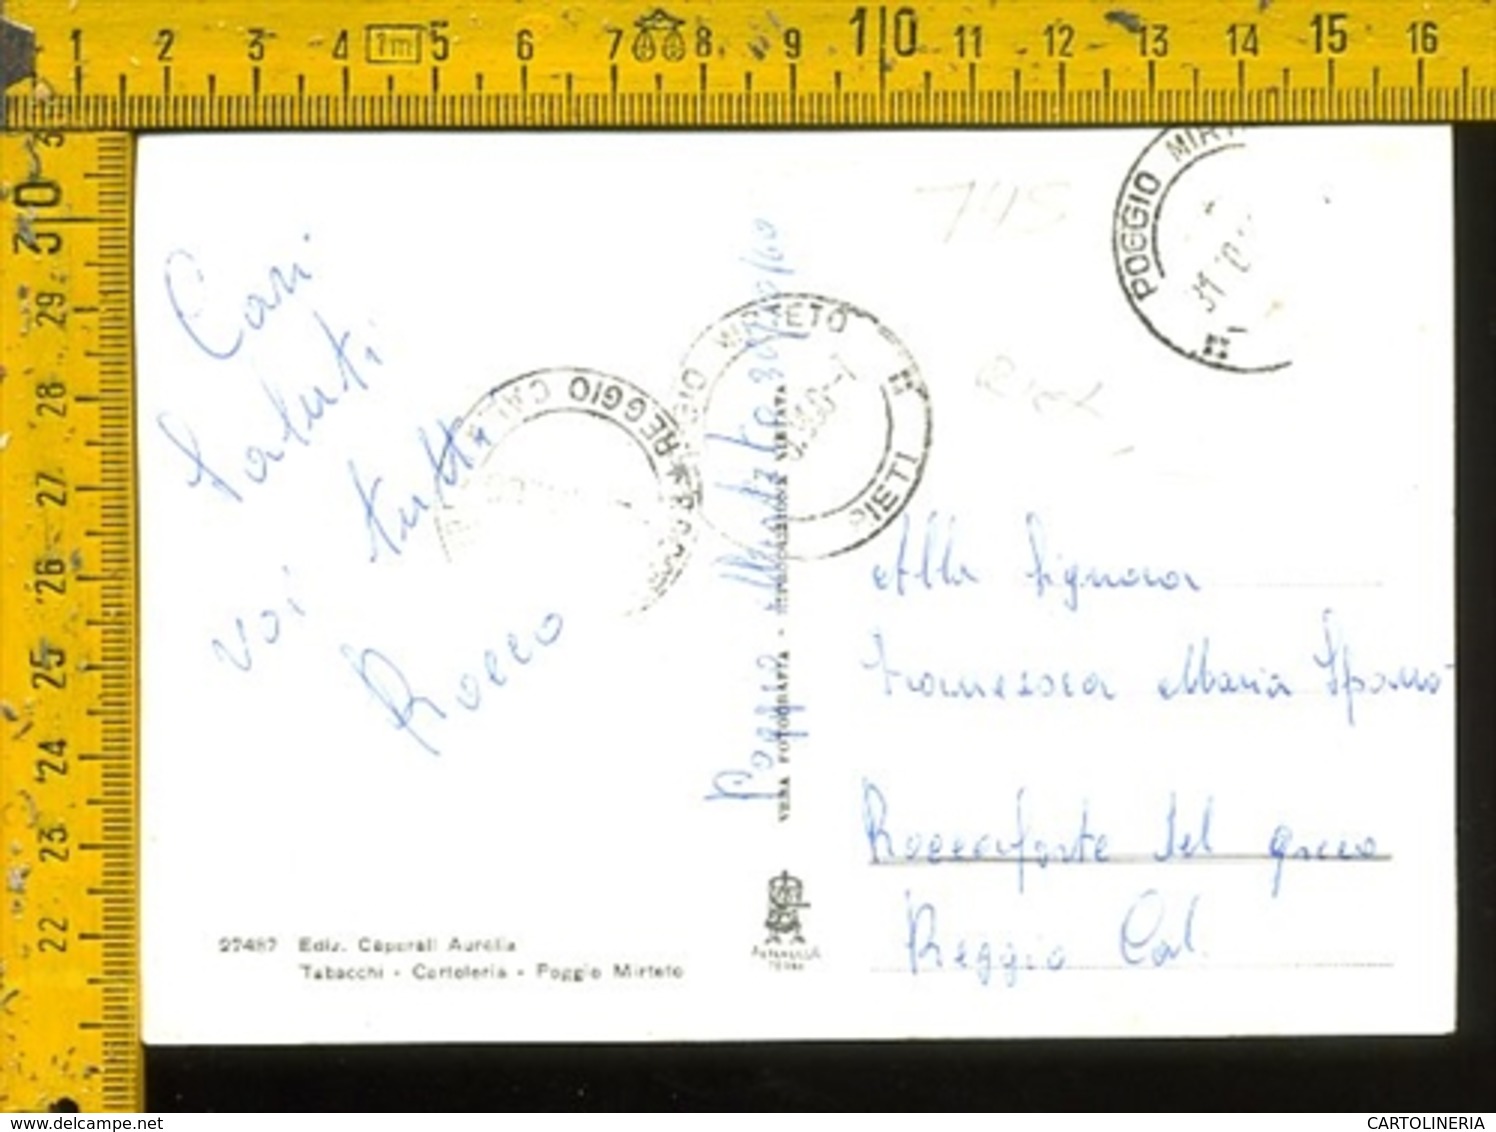 1 2 3 4 1m 5 6 7 8 9 10 11 12 13 14 15 16
30
29
28
27
26
25
24
23
22
POGGIO MIRT
31 10
Cari
saluti
voi tutti
Rocco
REGGIO CAL
POGGIO MIRTETO
RIETI
Poggio Mirteto 31/10/60
VERA FOTOGRAFIA - RIPRODUZIONE VIETATA
Alla Signora
Francesca Maria Spanò
Roccaforte del Greco
Reggio Cal.
27487 Ediz. Caporali Aurelia
Tabacchi - Cartoleria - Poggio Mirteto
www.delcampe.net
CARTOLINERIA